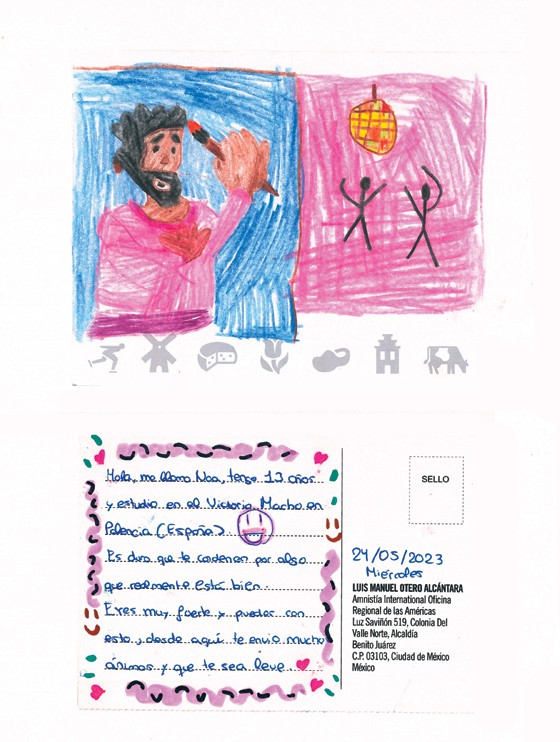 Hola, me llamo Noa, tengo 12 años
y estudio en el Victorio Macho en
Palencia (España)
Es duro que te condenen por algo
que realmente está bien.
Eres muy fuerte y puedes con
esto y desde aquí te envio mucho
ánimos y que te sea leve.
SELLO
24/05/2023
Miércoles
LUIS MANUEL OTERO ALCÁNTARA
Amnistía International Oficina
Regional de las Américas
Luz Saviñón 519, Colonia Del
Valle Norte, Alcaldía
Benito Juárez
C.P. 03103, Ciudad de México
México